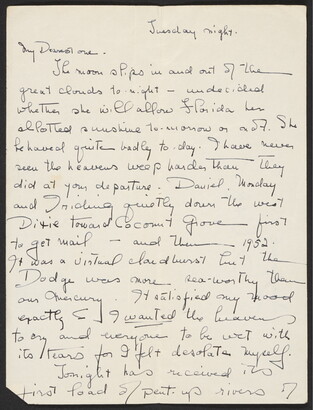 Tuesday night.
My Dearest one.
The moon slips in and out of the
great clouds to-night – undecided
whether she will allow Florida her
allotted sunshine to-morrow or not. She
behaved quite badly to-day. I have never
seen the heavens weep harder than they
did at your departure. Daniel, Monday
and I riding quietly down the west
Dixie toward Coconut Grove first
to get mail – and then 1952.
It was a virtual cloudburst but the
Dodge was more sea-worthy than
our Mercury. It satisfied my mood
exactly & I wanted the heavens
to cry and everyone to be wet with
its tears for I felt desolate myself.
Tonight has received its
first load of pent-up rivers of